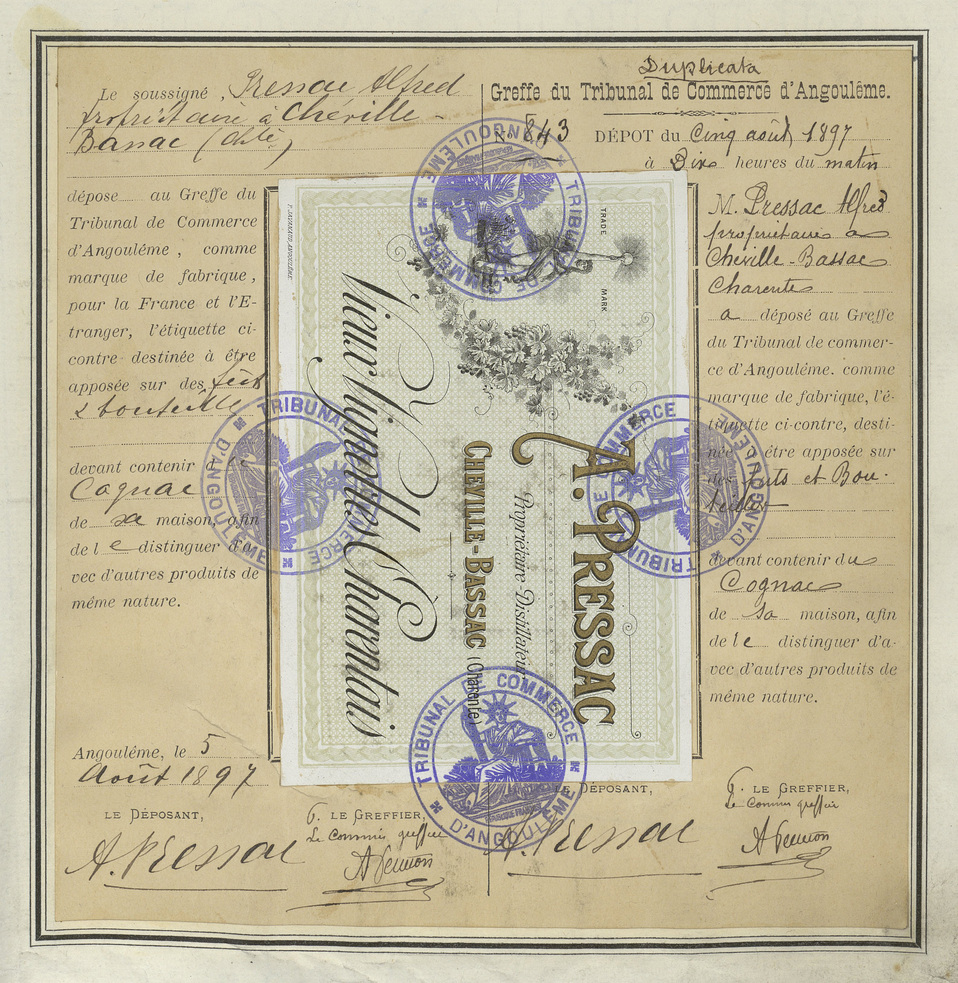 Le soussigné, Pressac Alfred
propriétaire à Chéville-
Bassac (Chte)
dépose au Greffe du
Tribunal de Commerce
d'Angoulême, comme
marque de fabrique,
pour la France et l'E-
tranger, l'étiquette ci-
contre destinée à être
apposée sur des fûts
& bouteille
devant contenir
Cognac
de sa maison, afin
de le distinguer d'a-
vec d'autres produits de
même nature.
Angoulême, le 5
Août 1897
LE DÉPOSANT,
A. Pressac
LE GREFFIER,
Le commis greffier
Duplicata
Greffe du Tribunal de Commerce d'Angoulême.
N° 843 DÉPOT du Cinq août 1897
à Dix heures du matin
M. Pressac Alfred
propriétaire à
Chéville-Bassac
Charente
a déposé au Greffe
du Tribunal de commer-
ce d'Angoulême. comme
marque de fabrique, l'é-
tiquette ci-contre, desti-
née être apposée sur
des futs et Bou-
teilles
devant contenir du
Cognac
de sa maison, afin
de le distinguer d'a-
vec d'autres produits de
même nature.
LE DÉPOSANT,
A. Pressac
LE GREFFIER,
Le commis greffier
TRADE MARK
A. PRESSAC
Propriétaire-Distillateur
CHEVILLE-BASSAC (Charente)
Vieux Vignobles Charentais
TRIBUNAL DE COMMERCE
D'ANGOULÊME
TRIBUNAL DE COMMERCE
D'ANGOULÊME
TRIBUNAL DE COMMERCE
D'ANGOULÊME
TRIBUNAL DE COMMERCE
D'ANGOULÊME